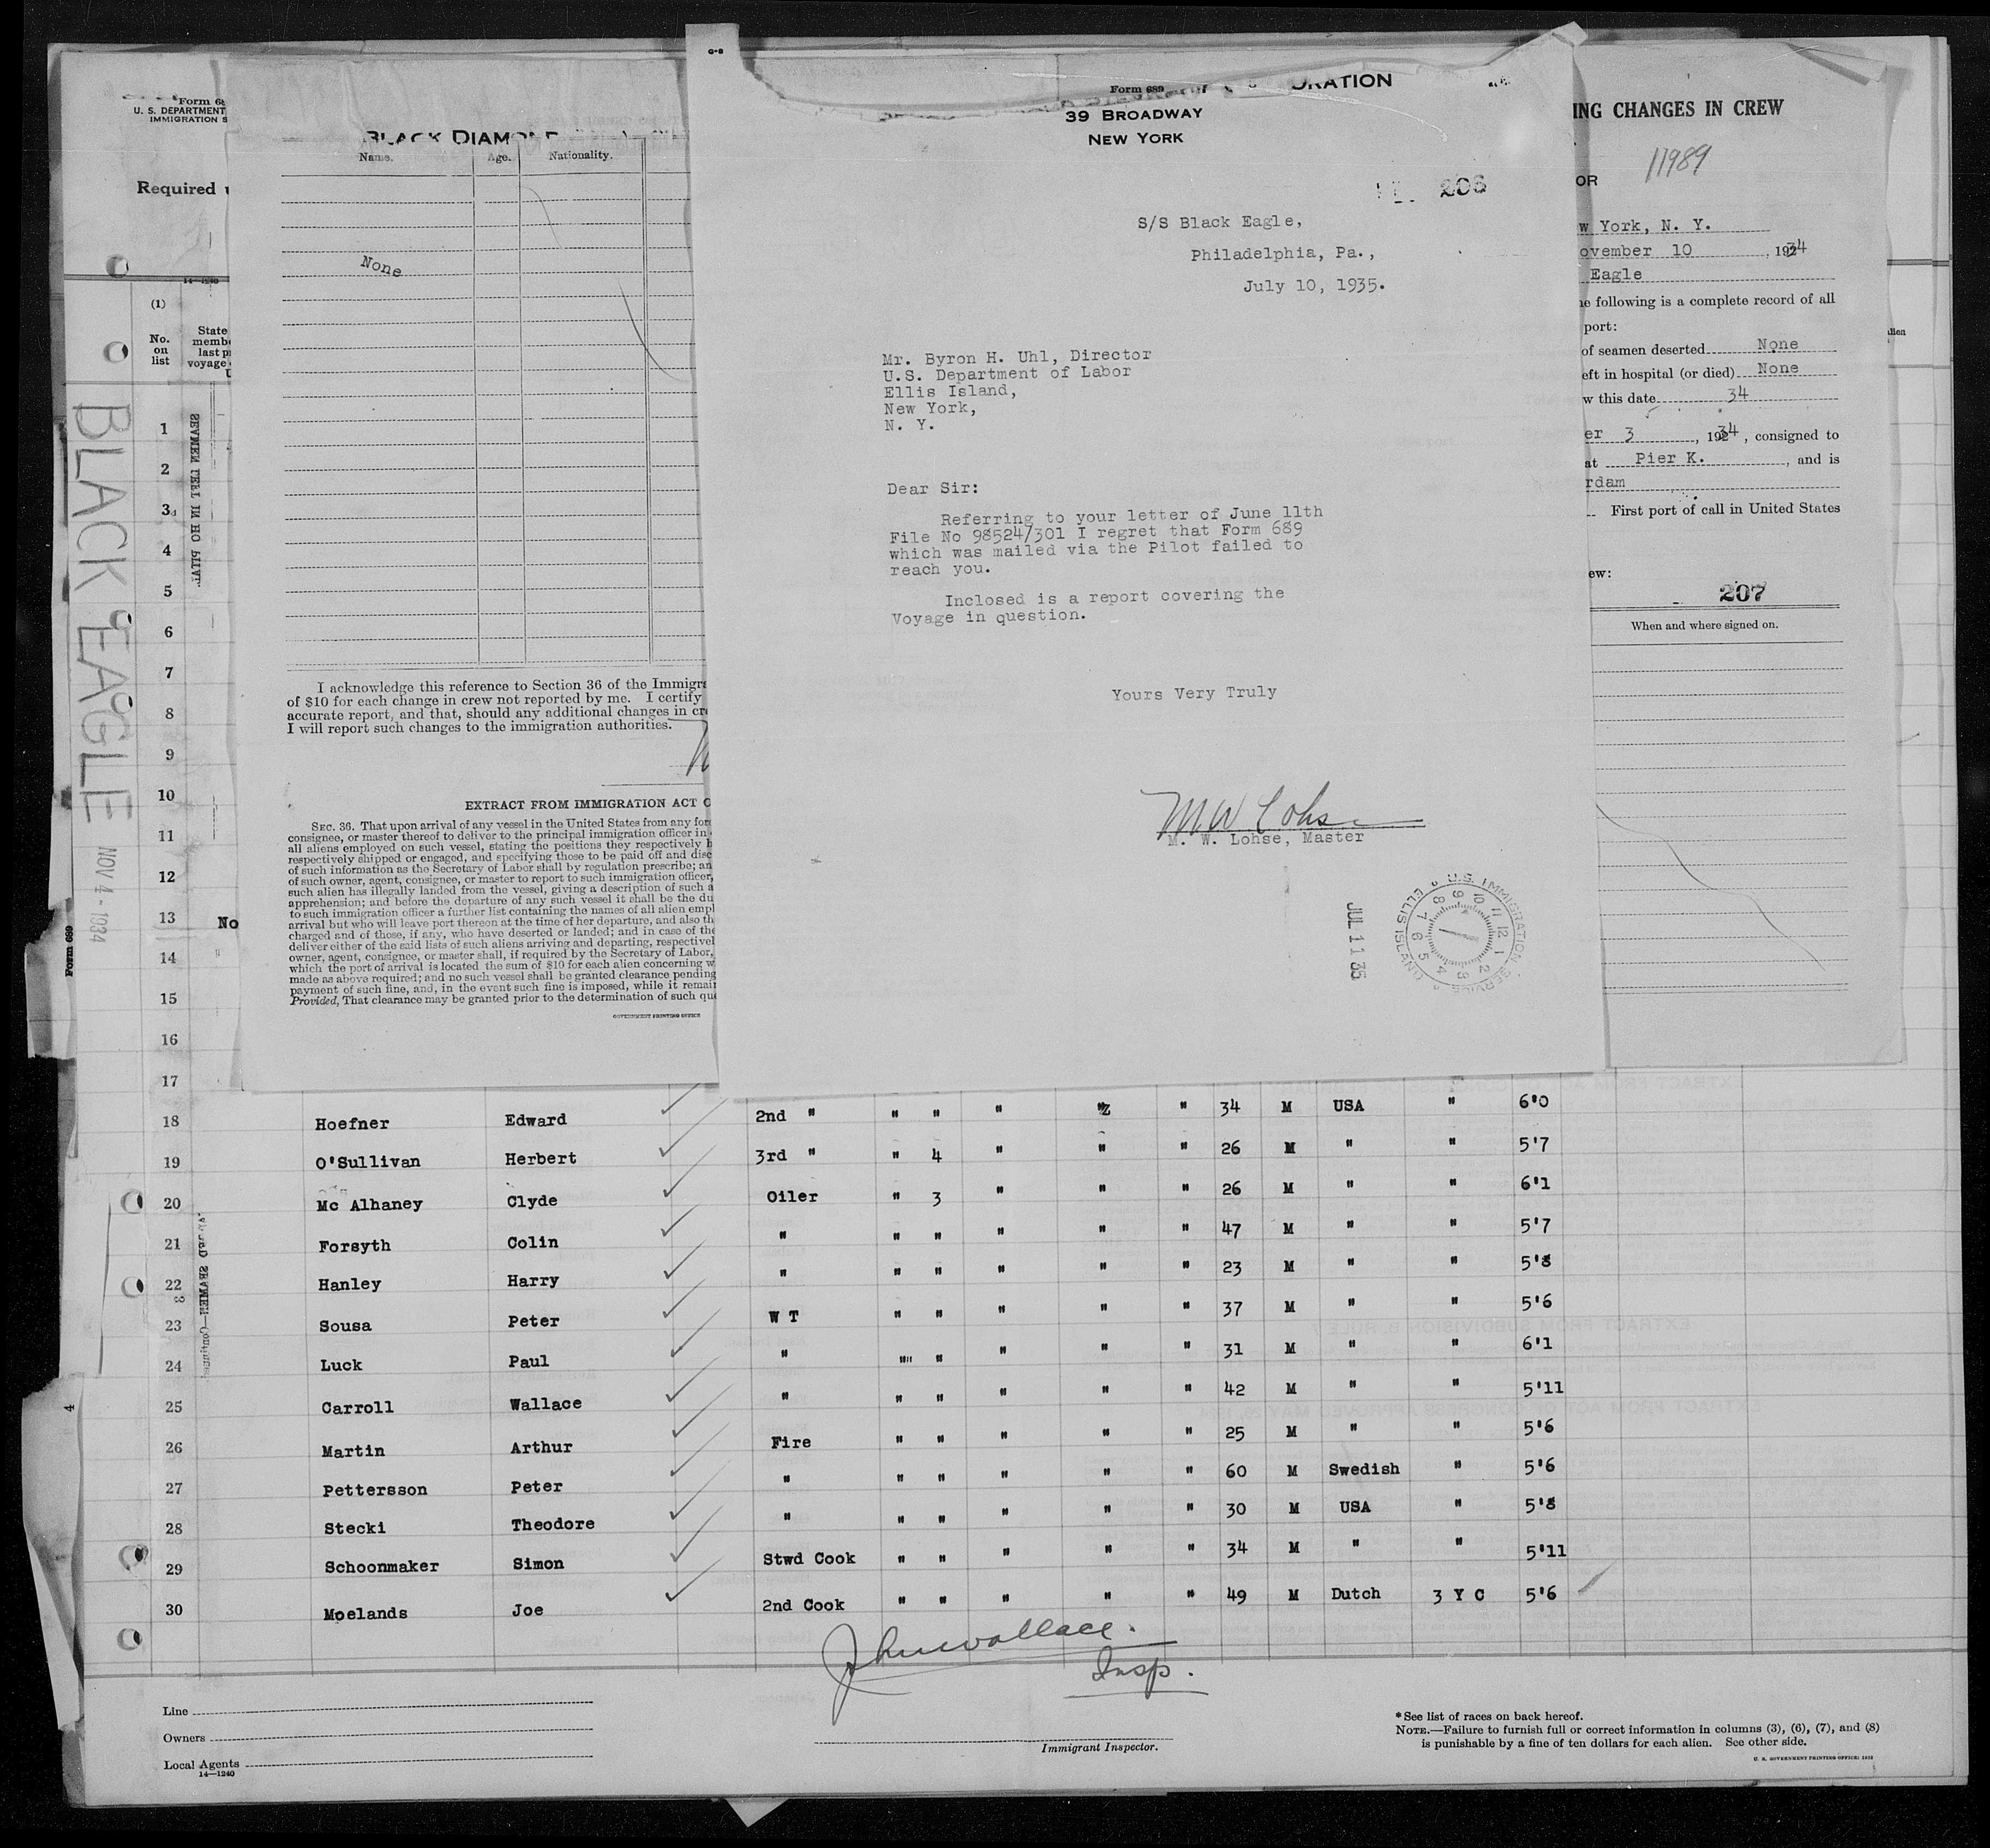 Form 68
U. S. DEPARTMENT
IMMIGRATION S
Required
14—1240
(1)
No. on list
State
membe
last p
voyage
BLACK EAGLE NOV 4 - 1934
Form 689
4
1
2
3
4
5
6
7
8
9
10
11
12
13 No
14
15
16
17
BLACK DIAMOND
Name. Age. Nationality.
None
I acknowledge this reference to Section 36 of the Immigra
of $10 for each change in crew not reported by me. I certify
accurate report, and that, should any additional changes in cre
I will report such changes to the immigration authorities.
EXTRACT FROM IMMIGRATION ACT O
SEC. 36. That upon arrival of any vessel in the United States from any for
consignee, or master thereof to deliver to the principal immigration officer in
all aliens employed on such vessel, stating the positions they respectively h
respectively shipped or engaged, and specifying those to be paid off and disc
of such information as the Secretary of Labor shall by regulation prescribe; an
of such owner, agent, consignee, or master to report to such immigration officer,
such alien has illegally landed from the vessel, giving a description of such a
apprehension; and before the departure of any such vessel it shall be the du
to such immigration officer a further list containing the names of all alien empl
arrival but who will leave port thereon at the time of her departure, and also th
charged and of those, if any, who have deserted or landed; and in case of the
deliver either of the said lists of such aliens arriving and departing, respectivel
owner, agent, consignee, or master shall, if required by the Secretary of Labor,
which the port of arrival is located the sum of $10 for each alien concerning w
made as above required; and no such vessel shall be granted clearance pending
payment of such fine, and, in the event such fine is imposed, while it remai
Provided, That clearance may be granted prior to the determination of such que
GOVERNMENT PRINTING OFFICE
G-8
Form 689
ORATION
39 BROADWAY
NEW YORK
206
S/S Black Eagle,
Philadelphia, Pa.,
July 10, 1935.
Mr. Byron H. Uhl, Director
U.S. Department of Labor
Ellis Island,
New York,
N. Y.
Dear Sir:
Referring to your letter of June 11th
File No 98524/301 I regret that Form 689
which was mailed via the Pilot failed to
reach you.
Inclosed is a report covering the
Voyage in question.
Yours Very Truly
M W Lohse
M. W. Lohse, Master
JUL 11 35
U.S. IMMIGRATION SERVICE ELLIS ISLAND
12 1 2 3 4 5 6 7 8 9 10 11
ING CHANGES IN CREW
11989
OR
w York, N. Y.
ovember 10, 1934
Eagle
he following is a complete record of all
port:
of seamen deserted None
eft in hospital (or died) None
w this date 34
er 3, 1934, consigned to
at Pier K., and is
rdam
First port of call in United States
ew:
207
When and where signed on.
18 Hoefner Edward 2nd " " " " " " 34 M USA " 6'0
19 O'Sullivan Herbert 3rd " " 4 " " " 26 M " " 5'7
20 Mc Alhaney Clyde Oiler " 3 " " " 26 M " " 6'1
21 Forsyth Colin " " " " " " 47 M " " 5'7
22 Hanley Harry " " " " " " 23 M " " 5'8
23 Sousa Peter W T " " " " " 37 M " " 5'6
24 Luck Paul " "" " " " " 31 M " " 6'1
25 Carroll Wallace " " " " " " 42 M " " 5'11
26 Martin Arthur Fire " " " " " 25 M " " 5'6
27 Pettersson Peter " " " " " " 60 M Swedish " 5'6
28 Stecki Theodore " " " " " " 30 M USA " 5'8
29 Schoonmaker Simon Stwd Cook " " " " " 34 M " " 5'11
30 Moelands Joe 2nd Cook " " " " " 49 M Dutch 3 Y C 5'6
John Wallace.
Insp.
Line
Owners
Local Agents
14—1240
Immigrant Inspector.
*See list of races on back hereof.
NOTE.—Failure to furnish full or correct information in columns (3), (6), (7), and (8)
is punishable by a fine of ten dollars for each alien. See other side.
U. S. GOVERNMENT PRINTING OFFICE: 1933